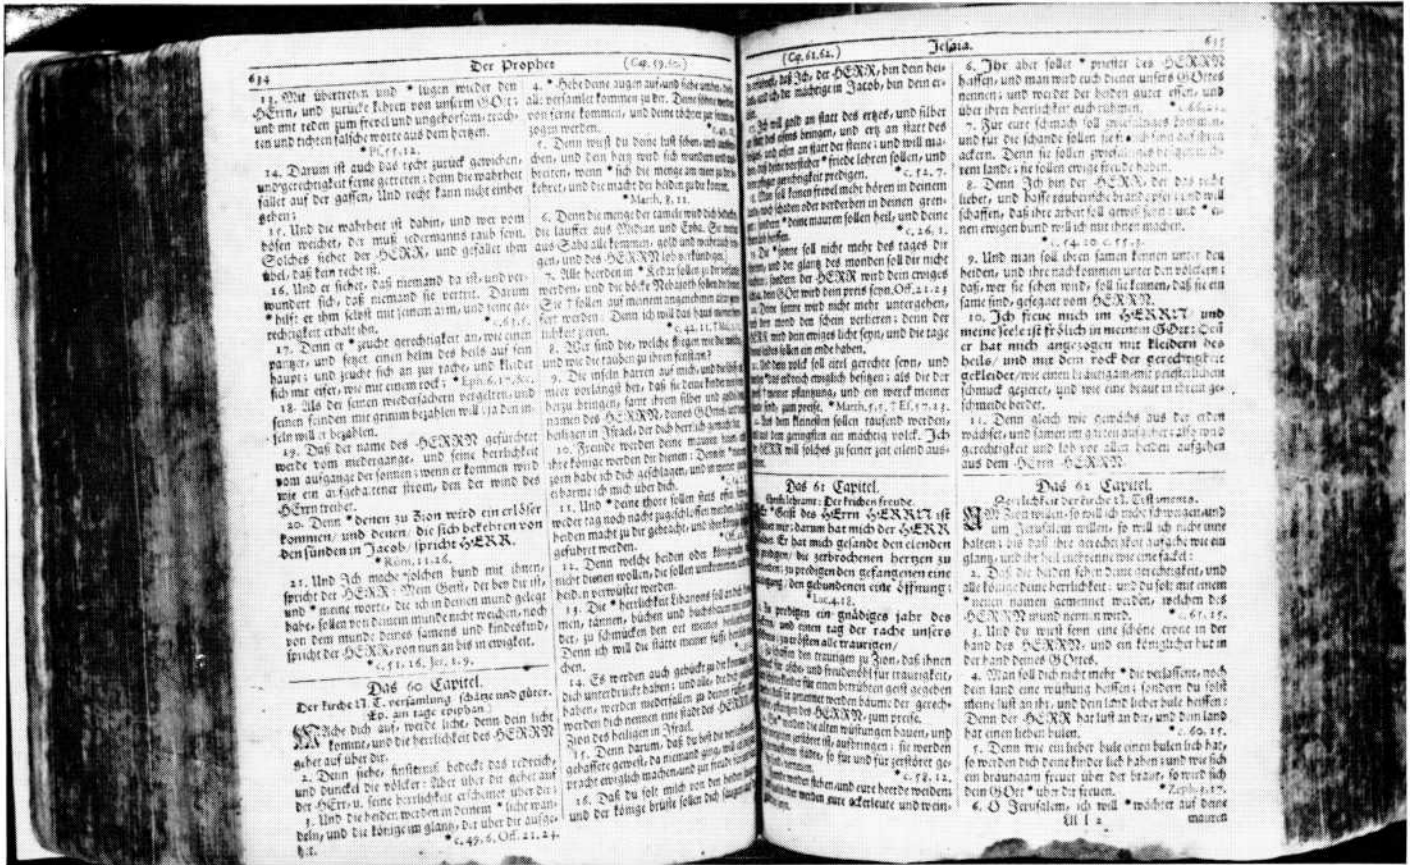 634
Der Prophet
(Cap. 59.60.)
13. Mit übertreten und * lügen wieder den
HErrn, und zurücke kehren von unserm GOtt;
und mit reden zum frevel und ungehorsam, trach-
ten und tichten falsche worte aus dem hertzen.
* Ps. 55, 12.
14. Darum ist auch das recht zurück gewichen,
und gerechtigkeit ferne getreten: denn die wahrheit
fället auf der gassen, Und recht kann nicht einher
gehen;
15. Und die wahrheit ist dahin, und wer vom
bösen weichet, der muß jedermanns raub seyn.
Solches siehet der HERR, und gefället ihm
übel, daß kein recht ist.
16. Und er siehet, daß niemand da ist, und ver-
wundert sich, daß niemand sie vertrit. Darum
* hilft er ihm selbst mit seinem arm, und seine ge-
rechtigkeit erhält ihn.
* c. 63, 5.
17. Denn er * zeucht gerechtigkeit an, wie einen
pantzer, und setzet einen helm des heils auf sein
haupt; und zeucht sich an zur rache, und kleidet
sich mit eifer, wie mit einem rock; * Eph. 6, 17. &c.
18. Als der seinen wiedersachern vergelten, und
seinen feinden mit grimm bezahlen will; ja den in-
seln will er bezahlen.
19. Daß der name des HERRN gefürchtet
werde vom niedergange, und seine herrlichkeit
vom aufgange der sonnen; wenn er kommen wird
wie ein aufgehaltener strom, den der wind des
HErrn treibet.
20. Denn * denen zu Zion wird ein erlöser
kommen/ und denen/ die sich bekehren von
den sünden in Jacob/ spricht HERR.
* Röm. 11, 26.
21. Und Ich mache solchen bund mit ihnen,
spricht der HERR: Mein Geist, der bey dir ist,
und * meine worte, die ich in deinen mund gelegt
habe, sollen von deinem munde nicht weichen, noch
von dem munde deines samens und kindeskind,
spricht der HERR, von nun an bis in ewigkeit.
* c. 51, 16. Jer. 1, 9.
Das 60 Capitel.
Der kirche N. T. versamlung, schätze und güter.
(Ep. am tage epiphan.)
MAche dich auf, werde licht, denn dein licht
kommt, und die herrlichkeit des HERRN
gehet auf über dir.
2. Denn siehe, finsterniß bedeckt das erdreich,
und dunckel die völcker: Aber über dir gehet auf
der HErr, u. seine herrlichkeit erscheinet über dir:
3. Und die heiden werden in deinem * licht wan-
deln, und die könige im glantz, der über dir aufge-
het.
* c. 49, 6. Off. 21, 24.
4. * Hebe deine augen auf, und siehe umher, diese
alle versamlet kommen zu dir. Deine söhne werden
von ferne kommen, und deine töchter zur seiten er-
zogen werden.
5. Denn wirst du deine lust sehen, und ausbre-
chen, und dein hertz wird sich wundern und aus-
breiten, wenn * sich die menge am meer zu dir be-
kehret, und die macht der heiden zu dir komm.
* Matth. 8, 11.
6. Denn die menge der camele wird dich bedecken,
die läuffer aus Midian und Epha. Sie werden
aus Saba alle kommen, gold und weihrauch brin-
gen, und des HERRN lob verkündigen.
7. Alle heerden in * Kedar sollen zu dir versamlet
werden, und die böcke Nebajoth sollen dir dienen.
Sie † sollen auf meinem angenehmen altar geop-
fert werden: Denn ich will das haus meiner herr-
lichkeit zieren.
* c. 42, 11.
8. Wer sind die, welche fliegen wie die wolcken,
und wie die tauben zu ihren fenstern?
9. Die inseln harren auf mich, und die schiffe im
meer vorlängst her, daß sie deine kinder von ferne
herzu bringen, samt ihrem silber und gold, dem
namen des HERRN, deines GOttes, und dem
heiligen in Israel, der dich herrlich gemacht hat.
10. Fremde werden deine mauren bauen, und
ihre könige werden dir dienen: Denn in * meinem
zorn habe ich dich geschlagen, und in meiner gnade
erbarme ich mich über dich.
11. Und * deine thore sollen stets offen stehen,
weder tag noch nacht zugeschlossen werden, daß der
heiden macht zu dir gebracht, und ihre könige herzu
geführet werden.
12. Denn welche heiden oder königreiche dir
nicht dienen wollen, die sollen umkommen, und die
heiden verwüstet werden.
13. Die * herrlichkeit Libanons soll an dich kom-
men, tannen, büchen und buchsbaum mit einan-
der, zu schmücken den ort meines heiligthums:
Denn ich will die stätte meiner füsse herrlich ma-
chen.
14. Es werden auch gebückt zu dir kommen, die
dich unterdruckt haben; und alle, die dich gelästert
haben, werden niederfallen zu deinen füssen, und
werden dich nennen eine stadt des HERRN, ein
Zion des heiligen in Israel.
15. Denn darum, daß du bist die verlassene und
gehassete gewest, da niemand ging, will ich dich zur
pracht ewiglich machen, und zur freude für und für.
16. Daß du solt milch von den heiden saugen,
und der könige brüste sollen dich säugen; auf
(Cap. 61.62.)
Jesaia.
635
erfahrest, daß Ich, der HERR, bin dein hei-
land, und ich, der mächtige in Jacob, bin dein er-
17. Ich will gold an statt des ertzes, und silber
an statt des eisens bringen, und ertz an statt des
holtzes, und eisen an statt der steine; und will ma-
chen, daß deine vorsteher * friede lehren sollen, und
deine pfleger gerechtigkeit predigen.
* c. 52, 7.
18. Man soll keinen frevel mehr hören in deinem
lande, noch schaden oder verderben in deinen gren-
tzen; sondern * deine mauren sollen heil, und deine
* c. 26, 1.
19. Die * sonne soll nicht mehr des tages dir
scheinen, und der glantz des monden soll dir nicht
leuchten; sondern der HERR wird dein ewiges
licht, und dein GOtt wird dein preis seyn. Off. 21, 23
20. Deine sonne wird nicht mehr untergehen,
noch dein mond den schein verlieren: denn der
HERR wird dein ewiges licht seyn, und die tage
deines leides sollen ein ende haben.
21. Und dein volck soll eitel gerechte seyn, und
werden * das erdreich ewiglich besitzen; als die der
zweig † meiner pflantzung, und ein werck meiner
hände sind, zum preise. * Matth. 5, 5. † Es. 57, 13.
22. Aus dem kleinesten sollen tausend werden,
und aus dem geringsten ein mächtig volck. Ich
der HERR will solches zu seiner zeit eilend aus-
Das 61 Capitel.
Christi lehramt: Der kirchen freude.
Der * Geist des HErrn HERRN ist
über mir; darum hat mich der HERR
gesalbet. Er hat mich gesandt den elenden
zu predigen/ die zerbrochenen hertzen zu
verbinden; zu predigen den gefangenen eine
erledigung/ den gebundenen eine öffnung;
* Luc. 4, 18.
2. Zu predigen ein gnädiges jahr des
HERRN, und einen tag der rache unsers
GOttes; zu trösten alle traurigen/
3. Zu schaffen den traurigen zu Zion, daß ihnen
schmuck für asche, und freudenöhl für traurigkeit,
und schöne kleider für einen betrübten geist gegeben
werden; daß sie genennet werden bäume der gerech-
tigkeit, pflantzen des HERRN, zum preise.
4. Sie * werden die alten wüstungen bauen, und
was vorzeiten zerstöret ist, aufbringen; sie werden
die verwüsteten städte, so für und für zerstöret ge-
legen, verneuen.
* c. 58, 12.
5. Fremde werden stehen, und eure heerde weiden;
und ausländer werden eure ackerleute und wein-
6. Ihr aber sollet * priester des HERRN
heissen, und man wird euch diener unsers GOttes
nennen; und werdet der heiden güter essen, und
über ihrer herrlichkeit euch rühmen.
* c. 66, 21.
7. Für eure schmach soll zwiefältiges kommen,
und für die schande sollen sie frölich seyn auf ihren
äckern. Denn sie sollen zwiefältiges besitzen in ih-
rem lande; sie sollen ewige freude haben.
8. Denn Ich bin der HERR, der das recht
liebet, und hasse räuberische brandopfer; und will
schaffen, daß ihre arbeit soll gewiß seyn; und * ei-
nen ewigen bund will ich mit ihnen machen.
* c. 54, 10. c. 55, 3.
9. Und man soll ihren samen kennen unter den
heiden, und ihre nachkommen unter den völckern;
daß, wer sie sehen wird, soll sie kennen, daß sie ein
same sind, gesegnet vom HERRN.
10. Ich freue mich im HERRN/ und
meine seele ist frölich in meinem GOtt: Denn
er hat mich angezogen mit kleidern des
heils/ und mit dem rock der gerechtigkeit
gekleidet/ wie einen bräutigam, mit priesterlichem
schmuck gezieret, und wie eine braut in ihrem ge-
schmeide berdet.
11. Denn gleich wie gewächs aus der erden
wächset, und samen im garten aufgehet: also wird
gerechtigkeit und lob vor allen heiden aufgehen
aus dem HErrn HERRN.
Das 62 Capitel.
Herrlichkeit der kirche N. Testaments.
UM Zion willen, so will ich nicht schweigen, und
um Jerusalem willen, so will ich nicht inne
halten; bis daß ihre gerechtigkeit aufgehe wie ein
glantz, und ihr heil entbrenne wie eine fackel:
2. Daß die heiden sehen deine gerechtigkeit, und
alle könige deine herrlichkeit; und du solt mit einem
* neuen namen genennet werden, welchen des
HERRN mund nennen wird.
* c. 65, 15.
3. Und du wirst seyn eine schöne crone in der
hand des HERRN, und ein königlicher hut in
der hand deines GOttes.
4. Man soll dich nicht mehr * die verlassene, noch
dein land eine wüstung heissen; sondern du solst
meine lust an ihr, und dein land lieber bule heissen:
Denn der HERR hat lust an dir, und dein land
hat einen lieben bulen.
* c. 60, 15.
5. Denn wie ein lieber bule einen bulen lieb hat,
so werden dich deine kinder lieb haben; und wie sich
ein bräutigam freuet über der braut, so wird sich
dein GOtt * über dir freuen.
* Zeph. 3, 17.
6. O Jerusalem, ich will * wächter auf deine
Lll l 2
mauren